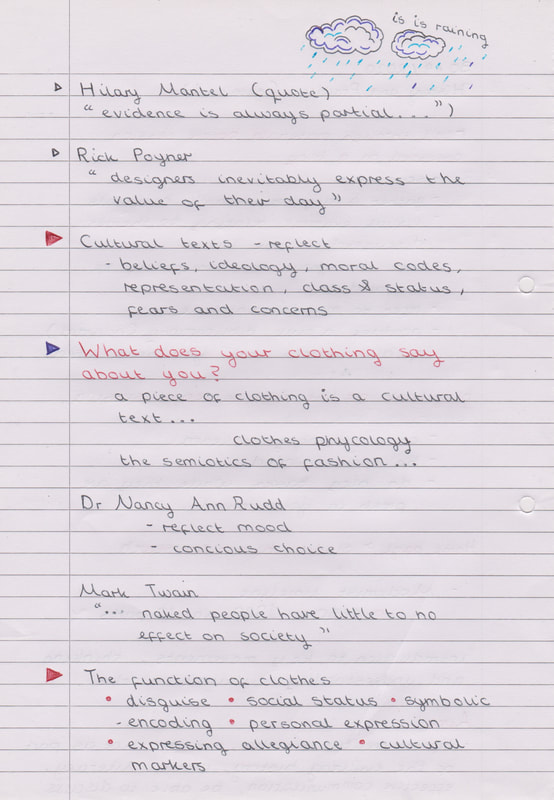 is is raining
Hilary Mantel (quote)
“ evidence is always partial...”)
Rick Poyner
“ designers inevitably express the
value of their day ”
Cultural texts - reflect
- beliefs, ideology, moral codes,
representation, class & status,
fears and concerns
What does your clothing say
about you?
a piece of clothing is a cultural
text...
clothes phycology
the semiotics of fashion...
Dr Nancy Ann Rudd
- reflect mood
- concious choice
Mark Twain
“... naked people have little to no
effect on society ”
The function of clothes
• disguise • social status • symbolic
- encoding • personal expression
• expressing allegiance • cultural
markers